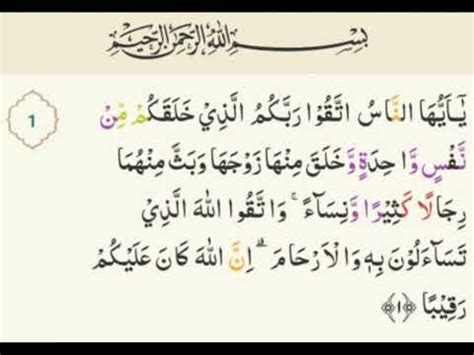 بِسْمِ اللهِ الرَّحْمٰنِ الرَّحِيْمِ
يٰٓاَيُّهَا النَّاسُ اتَّقُوْا رَبَّكُمُ الَّذِيْ خَلَقَكُمْ مِّنْ
1
نَّفْسٍ وَّاحِدَةٍ وَّخَلَقَ مِنْهَا زَوْجَهَا وَبَثَّ مِنْهُمَا
رِجَالًا كَثِيْرًا وَّنِسَاۤءً ۚ وَاتَّقُوا اللهَ الَّذِيْ
تَسَاۤءَلُوْنَ بِهٖ وَالْاَرْحَامَ ۗ اِنَّ اللهَ كَانَ عَلَيْكُمْ
رَقِيْبًا ﴿١﴾